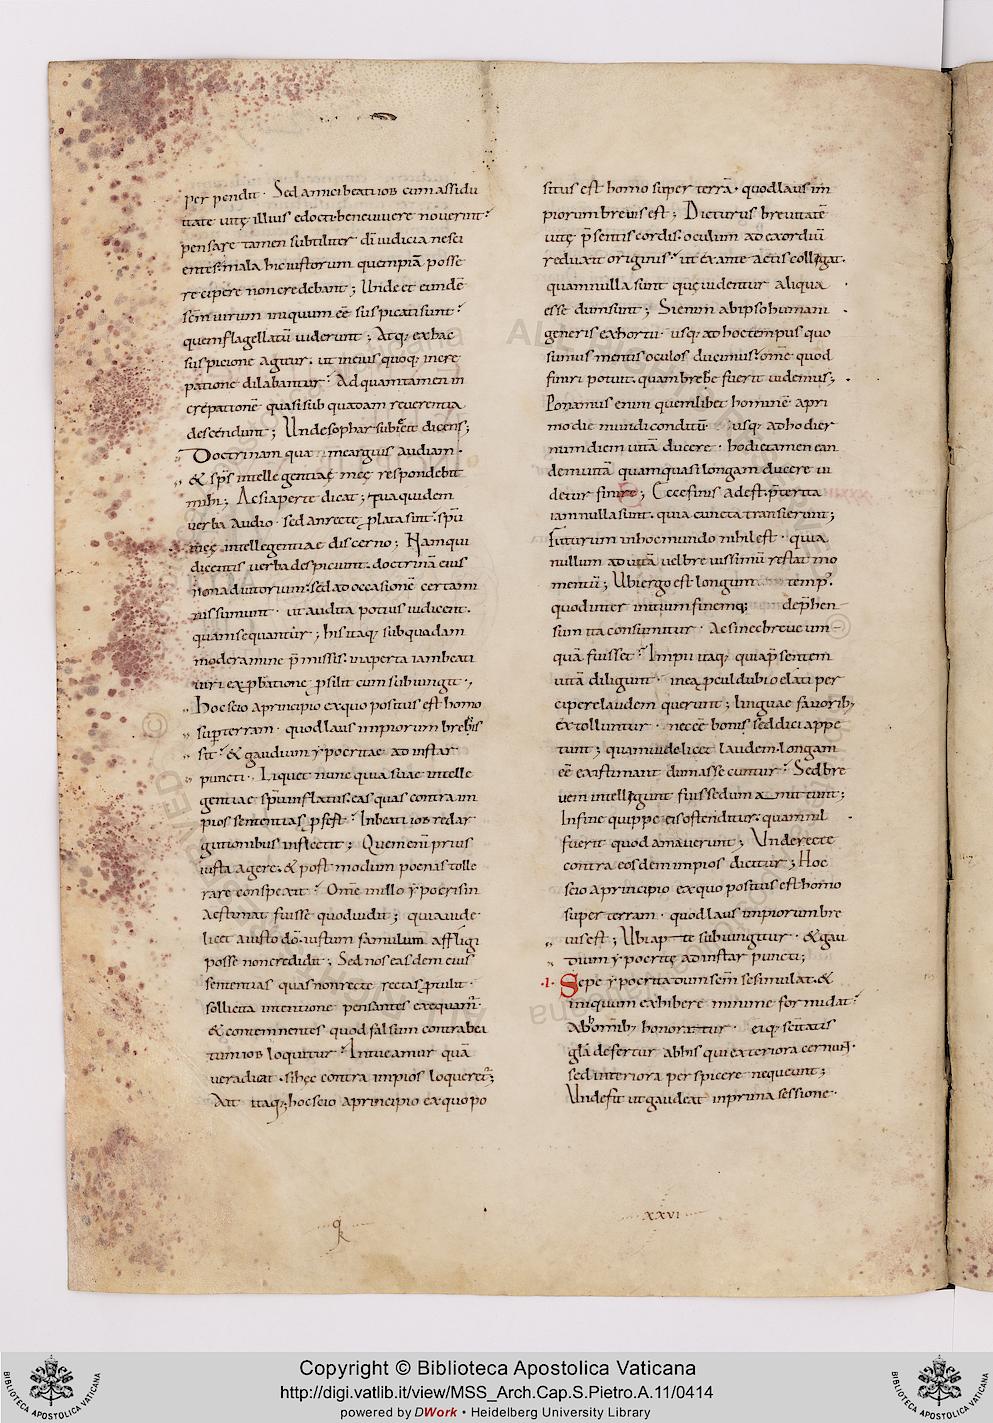 per pendit · Sed amici beati iob cum assidu
itate vitę illius edocti · bene vivere noverint ·
pensare tamen subtiliter di iudicia nesci
entes · mala hic iustorum quempiā posse
recipere non credebant ; Unde et eundē
scm̄ virum iniquum eē suspicati sunt ·
quem flagellatū viderunt ; Atq; ex hac
suspicione agitur · ut in eius quoq; incre
patione dilabantur · Ad quam tamen in
crepationē quasi sub quadam reverentia
descendunt ; Unde sophar subiecit dicens ;
Doctrinam qua me arguis audiam ·
& sp̄s intellegentiae meę respondebit
mihi ; Ac si aperte dicat ; tua quidem
verba audio · sed an recte plata sint · sp̄u
meę intellegentiae discerno ; Nam qui
dicentis verba despiciunt · doctrinā eius
non adiutorium · sed ad occasionē certami
nis sumunt · ut audita potius iudicent ·
quam sequantur ; his itaq; sub quodam
moderamine p̄missis · in aperta iam beati
viri exprobatione psilit cum subiungit ·
Hoc scio a principio ex quo positus est homo
sup terram · quod laus impiorum brevis
sit · & gaudium ypocritae ad instar
puncti · Liquet nunc quia suae intelle
gentiae sp̄u inflatus · eas quas contra im
pios sententias psert · In beati iob redar
gutionibus inflectit ; Quem enī prius
iusta agere · & post modum poenas tolle
rare conspexit · Omē in illo ypocrisin
aestimat fuisse quod vidit ; quia vide
licet a iusto dō · iustum famulum affligi
posse non credidit ; Sed nos easdem eius
sententias quas non recte rectas ptulit ·
sollicita intentione pensantes exequam̄ ·
& contemnentes quod falsum contra bea
tum iob loquitur · Intueamur quā
vera dicat · si hęc contra impios loqueret̄ ;
Ait itaq; hoc scio a principio ex quo po
q
situs est homo super terrā · quod laus im
piorum brevis est ; Dicturus brevitatē
vitę p̄sentis cordis · oculum ad exordiū
reduxit originis · ut ex ante actis colligat ·
quam nulla sunt quę videntur aliqua
esse dum sunt ; Si enim ab ipso humani
generis exhortu · usq; ad hoc tempus quo
sumus mentis oculos ducimus · omē quod
finiri potuit · quam breve fuerit videmus ;
Ponamus enim quemlibet hominē a pri
mo die mundi conditū · usq; ad hodier
num diem vitā ducere · hodie tamen ean
dem vitā quam quasi longam ducere vi
detur finire ; Ecce finis adest · p̄terita
iam nulla sunt · quia cuncta transierunt ;
futurum in hoc mundo nihil est · quia
nullum ad vitā vel brevissimū restat mo
mentū ; Ubi ergo est longum temp⁹
quod inter initium finemq; dep̄hen
sum ita consumitur · Ac sine breve um
quā fuisset · Impii itaq; quia p̄sentem
vitā diligunt · in ea pcul dubio elati per
cipere laudem querunt ; linguae favorib;
extolluntur · nec eē bonis sed dici appe
tunt ; quam videlicet laudem longam
eē existimant dum assecuntur · Sed bre
vem intelligunt fuisse dum amittunt ;
In fine quippe eis ostenditur · quam nil
fuerit quod amaverunt ; Unde recte
contra eosdem impios dicitur ; Hoc
scio a principio ex quo positus est homo
super terram · quod laus impiorum bre
vis est ; Ubi apte subiungitur · & gau
dium ypocritę ad instar puncti ;
·I· Sepe ypocrita dum scm̄ se simulat · &
iniquum exhibere minime formidat ·
Ab homib; honoratur · eiq; scitatis
glā defertur ab his qui exteriora cernunt ·
sed interiora perspicere nequeunt ;
Unde fit ut gaudeat in prima sessione ·
XXVI
Copyright © Biblioteca Apostolica Vaticana
http://digi.vatlib.it/view/MSS_Arch.Cap.S.Pietro.A.11/0414
powered by DWork • Heidelberg University Library
BIBLIOTECA APOSTOLICA VATICANA
BIBLIOTECA APOSTOLICA VATICANA